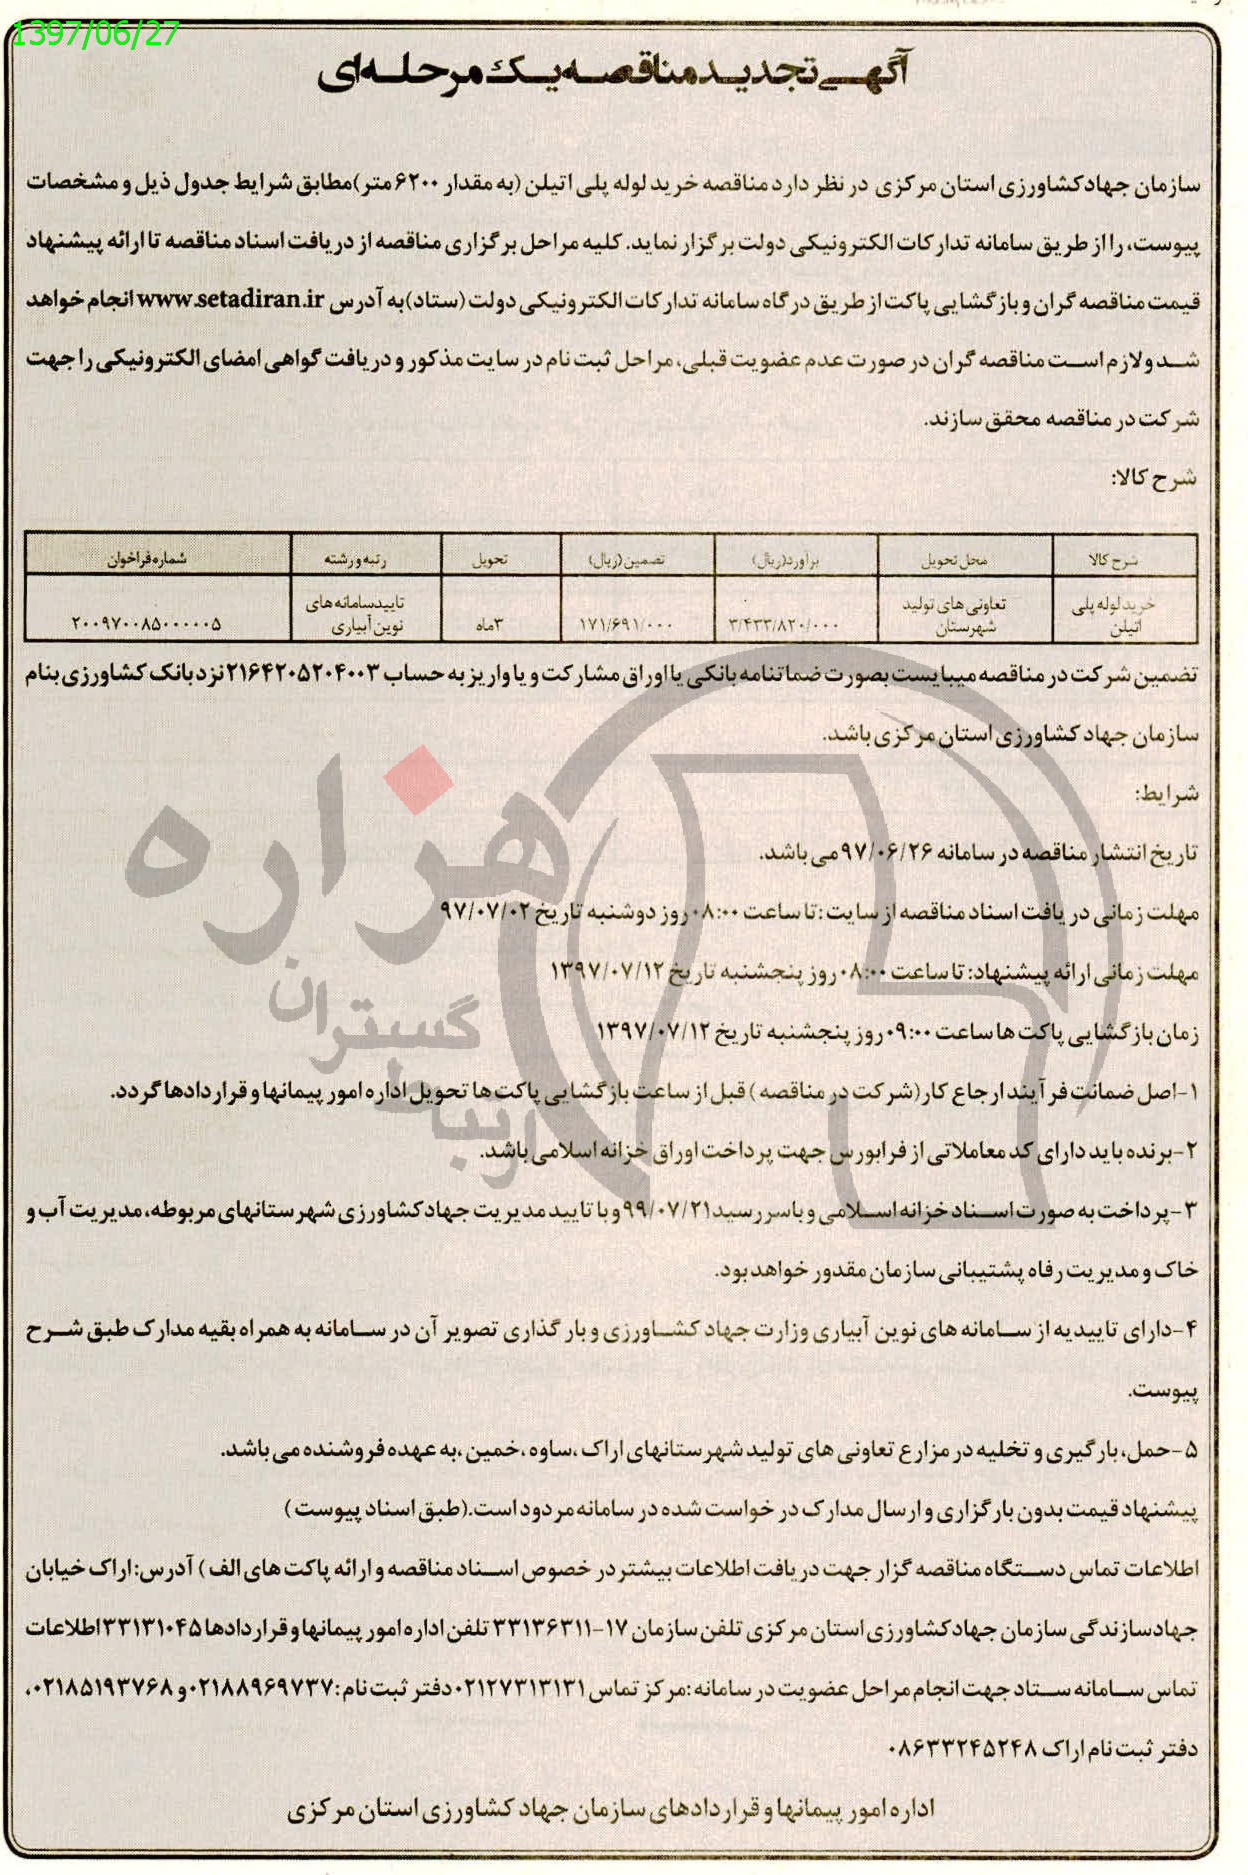 1397/06/27
آگهی تجدید مناقصه یک مرحله‌ای
سازمان جهاد کشاورزی استان مرکزی در نظر دارد مناقصه خرید لوله پلی اتیلن (به مقدار ۶۲۰۰ متر)مطابق شرایط جدول ذیل و مشخصات
پیوست، را از طریق سامانه تدارکات الکترونیکی دولت برگزار نماید. کلیه مراحل برگزاری مناقصه از دریافت اسناد مناقصه تا ارائه پیشنهاد
قیمت مناقصه گران و بازگشایی پاکت از طریق درگاه سامانه تدارکات الکترونیکی دولت (ستاد)به آدرس www.setadiran.ir انجام خواهد
شد و لازم است مناقصه گران در صورت عدم عضویت قبلی، مراحل ثبت نام در سایت مذکور و دریافت گواهی امضای الکترونیکی را جهت
شرکت در مناقصه محقق سازند.
شرح کالا:
شرح کالا	محل تحویل	برآورد(ریال)	تضمین (ریال)	تحویل	رتبه و رشته	شماره فراخوان
خرید لوله پلی	تعاونی های تولید	تایید سامانه های
اتیلن	شهرستان	۳/۴۳۳/۸۲۰/۰۰۰	۱۷۱/۶۹۱/۰۰۰	۳ماه	نوین آبیاری	۲۰۰۹۷۰۰۸۵۰۰۰۰۰۵
تضمین شرکت در مناقصه میبایست بصورت ضمانتنامه بانکی یا اوراق مشارکت و یا واریز به حساب ۲۱۶۴۲۰۵۲۰۴۰۰۳ نزد بانک کشاورزی بنام
سازمان جهاد کشاورزی استان مرکزی باشد.
شرایط:
تاریخ انتشار مناقصه در سامانه ۹۷/۰۶/۲۶ می باشد.
مهلت زمانی دریافت اسناد مناقصه از سایت :تا ساعت ۰۸:۰۰ روز دوشنبه تاریخ ۹۷/۰۷/۰۲
مهلت زمانی ارائه پیشنهاد: تا ساعت ۰۸:۰۰ روز پنجشنبه تاریخ ۱۳۹۷/۰۷/۱۲
زمان بازگشایی پاکت ها ساعت ۰۹:۰۰ روز پنجشنبه تاریخ ۱۳۹۷/۰۷/۱۲
۱-اصل ضمانت فرآیند ارجاع کار(شرکت در مناقصه ) قبل از ساعت بازگشایی پاکت ها تحویل اداره امور پیمانها و قراردادها گردد.
۲-برنده باید دارای کد معاملاتی از فرابورس جهت پرداخت اوراق خزانه اسلامی باشد.
۳-پرداخت به صورت اسناد خزانه اسلامی و با سررسید ۹۹/۰۷/۲۱ و با تایید مدیریت جهاد کشاورزی شهرستانهای مربوطه، مدیریت آب و
خاک و مدیریت رفاه پشتیبانی سازمان مقدور خواهد بود.
۴-دارای تاییدیه از سامانه های نوین آبیاری وزارت جهاد کشاورزی و بارگذاری تصویر آن در سامانه به همراه بقیه مدارک طبق شرح
پیوست.
۵-حمل، بارگیری و تخلیه در مزارع تعاونی های تولید شهرستانهای اراک ،ساوه ،خمین ،به عهده فروشنده می باشد.
پیشنهاد قیمت بدون بارگزاری و ارسال مدارک درخواست شده در سامانه مردود است.(طبق اسناد پیوست )
اطلاعات تماس دستگاه مناقصه گزار جهت دریافت اطلاعات بیشتر در خصوص اسناد مناقصه و ارائه پاکت های الف ) آدرس:اراک خیابان
جهادسازندگی سازمان جهاد کشاورزی استان مرکزی تلفن سازمان ۱۷-۳۳۱۳۶۳۱۱ تلفن اداره امور پیمانها و قراردادها ۳۳۱۳۱۰۴۵ اطلاعات
تماس سامانه ستاد جهت انجام مراحل عضویت در سامانه :مرکز تماس ۰۲۱۲۷۳۱۳۱۳۱ دفتر ثبت نام :۰۲۱۸۸۹۶۹۷۳۷ و ۰۲۱۸۵۱۹۳۷۶۸،
دفتر ثبت نام اراک ۰۸۶۳۳۲۴۵۲۴۸
اداره امور پیمانها و قراردادهای سازمان جهاد کشاورزی استان مرکزی
هزاره
گستران
ارتباط